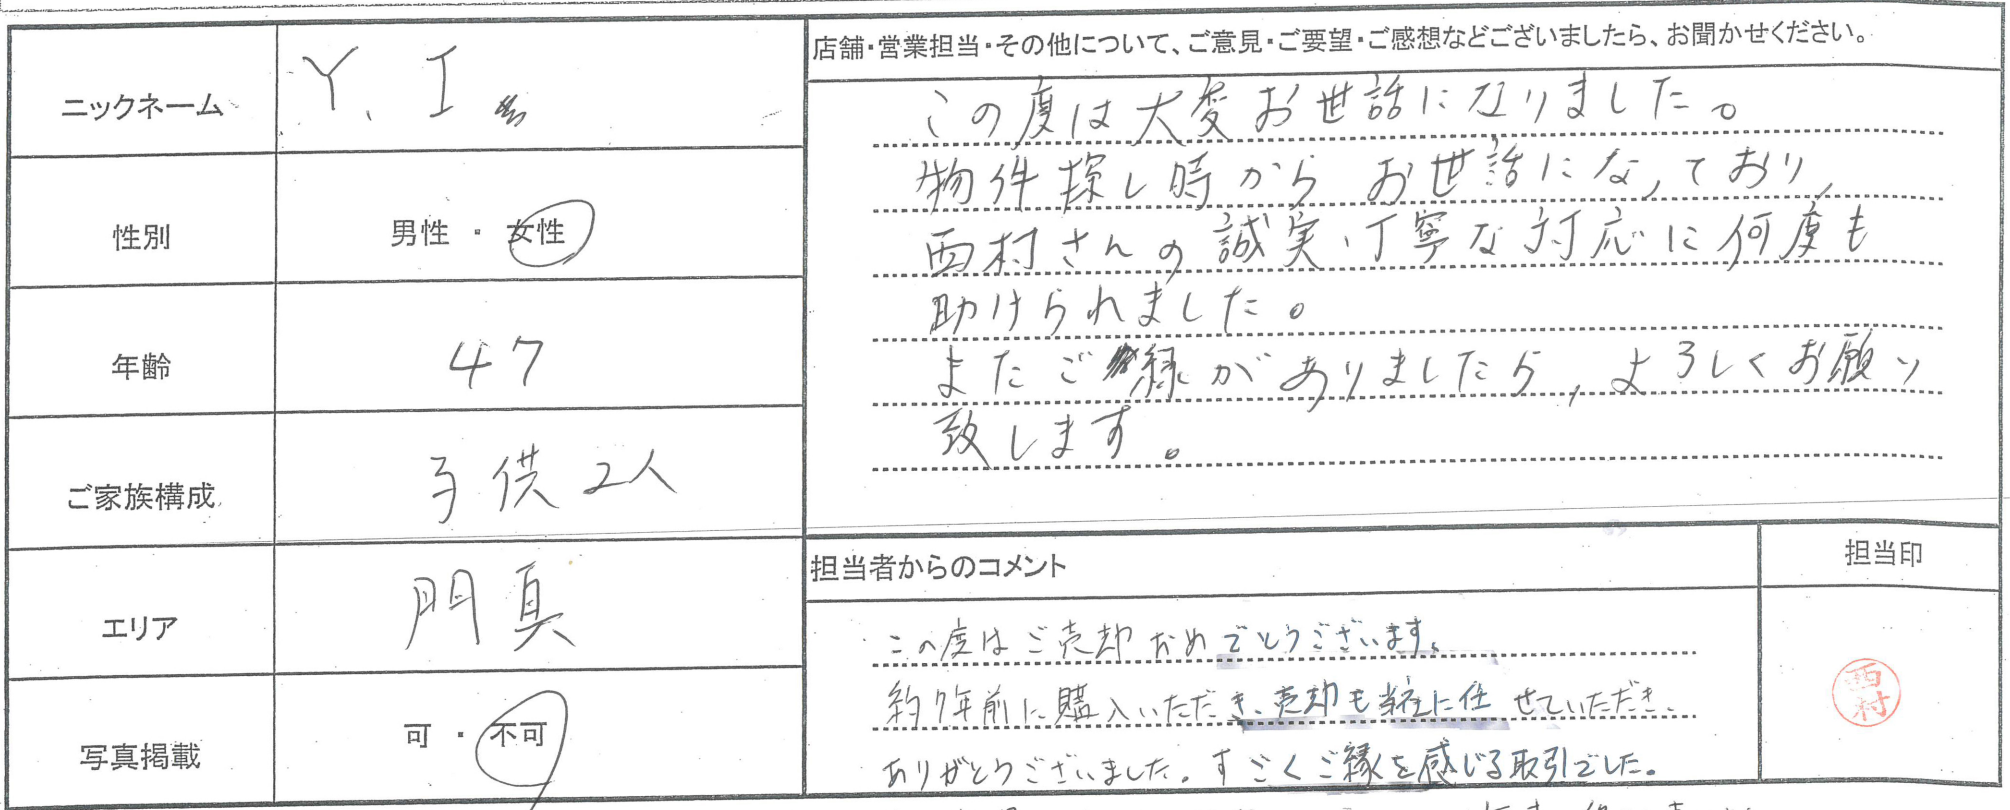 ニックネーム Y. I
性別 男性 ・ 女性
年齢 47
ご家族構成 子供 2人
エリア 門真
写真掲載 可 ・ 不可
店舗・営業担当・その他について、ご意見・ご要望・ご感想などございましたら、お聞かせください。
この度は大変お世話になりました。
物件探し時からお世話になっており、
西村さんの誠実、丁寧な対応に何度も
助けられました。
またご縁がありましたら、よろしくお願い
致します。
担当者からのコメント
この度はご売却おめでとうございます。
約7年前に購入いただき、売却も当社に任せていただき、
ありがとうございました。すごくご縁を感じる取引でした。
担当印
西村